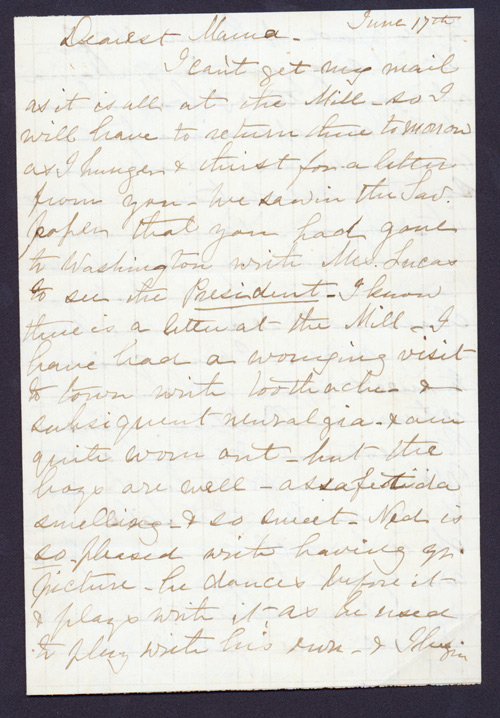 June 17th
Dearest Mama -
I can't get my mail
as it is all at the Mill - so I
will have to return there tomorrow
as I hunger & thirst for a letter
from you - We saw in the Sav.
paper that you had gone
to Washington with Mrs. Lucas
to see the President - I know
there is a letter at the Mill - I
have had a worrying visit
to town with toothache - &
subsequent neuralgia - & am
quite worn out - but the
boys are well - assafetida
smelling - & so sweet - Ned is
so pleased with having yr.
picture - he dances before it
& plays with it as he used
to play with his own - & I begin